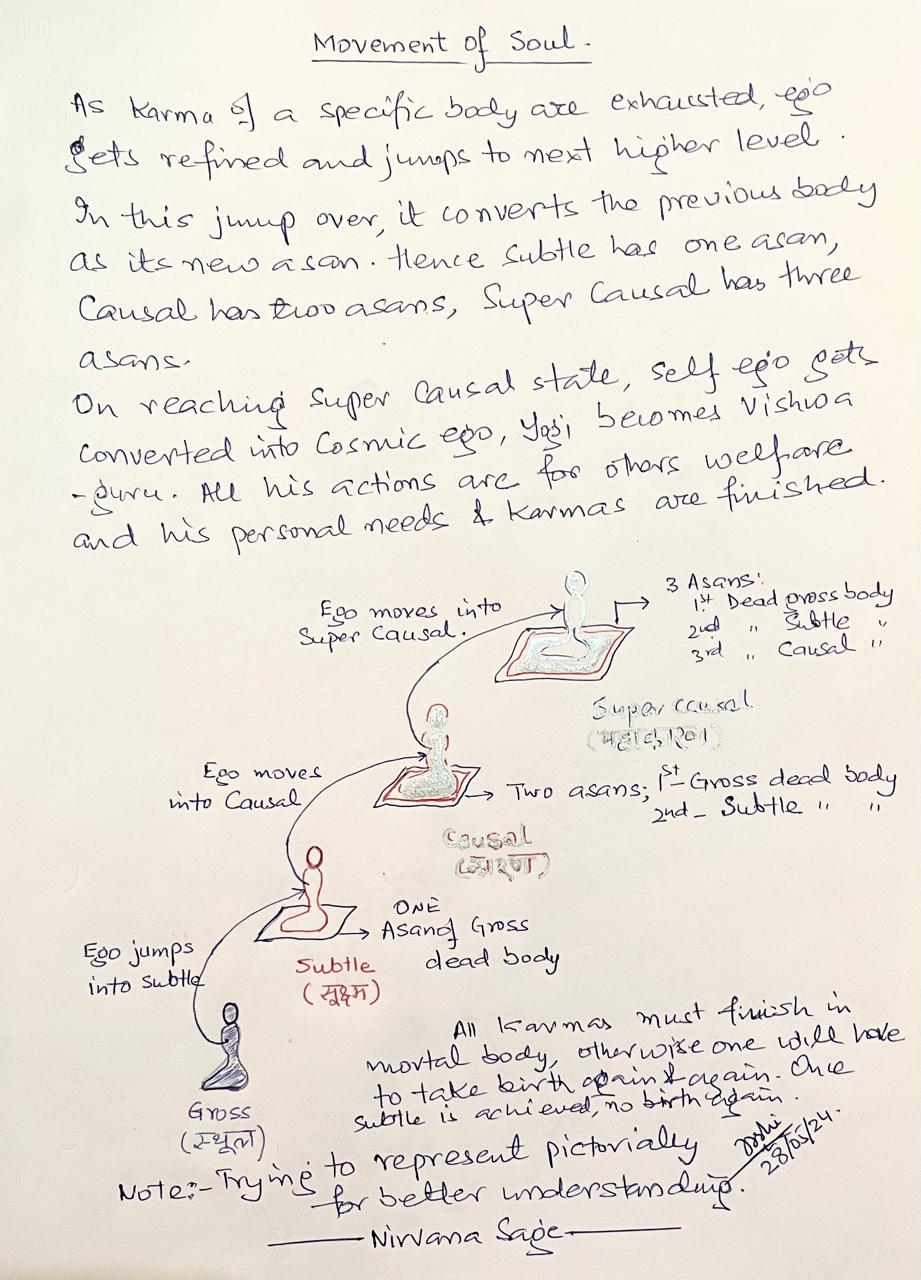 Movement of Soul.
As Karma of a specific body are exhausted, ego
gets refined and jumps to next higher level.
In this jump over, it converts the previous body
as its new asan. Hence Subtle has one asan,
Causal has two asans, Super Causal has three
asans.
On reaching Super Causal state, self ego gets
converted into Cosmic ego, Yogi becomes Vishwa
-guru. All his actions are for others welfare
and his personal needs & Karmas are finished.
Ego moves into
Super Causal.
3 Asans:
1st Dead gross body
2nd " Subtle "
3rd " Causal "
Super Causal
(महाकारण)
Ego moves
into Causal
Two asans; 1st - Gross dead body
2nd - Subtle " "
Causal
(कारण)
ONE
Asan of Gross
dead body
Ego jumps
into subtle
Subtle
(सूक्ष्म)
Gross
(स्थूल)
All Karmas must finish in
mortal body, otherwise one will have
to take birth again & again. Once
subtle is achieved, no birth again.
Joshi
28/05/24.
Note:- Trying to represent pictorially
for better understanding.
Nirvana Sage